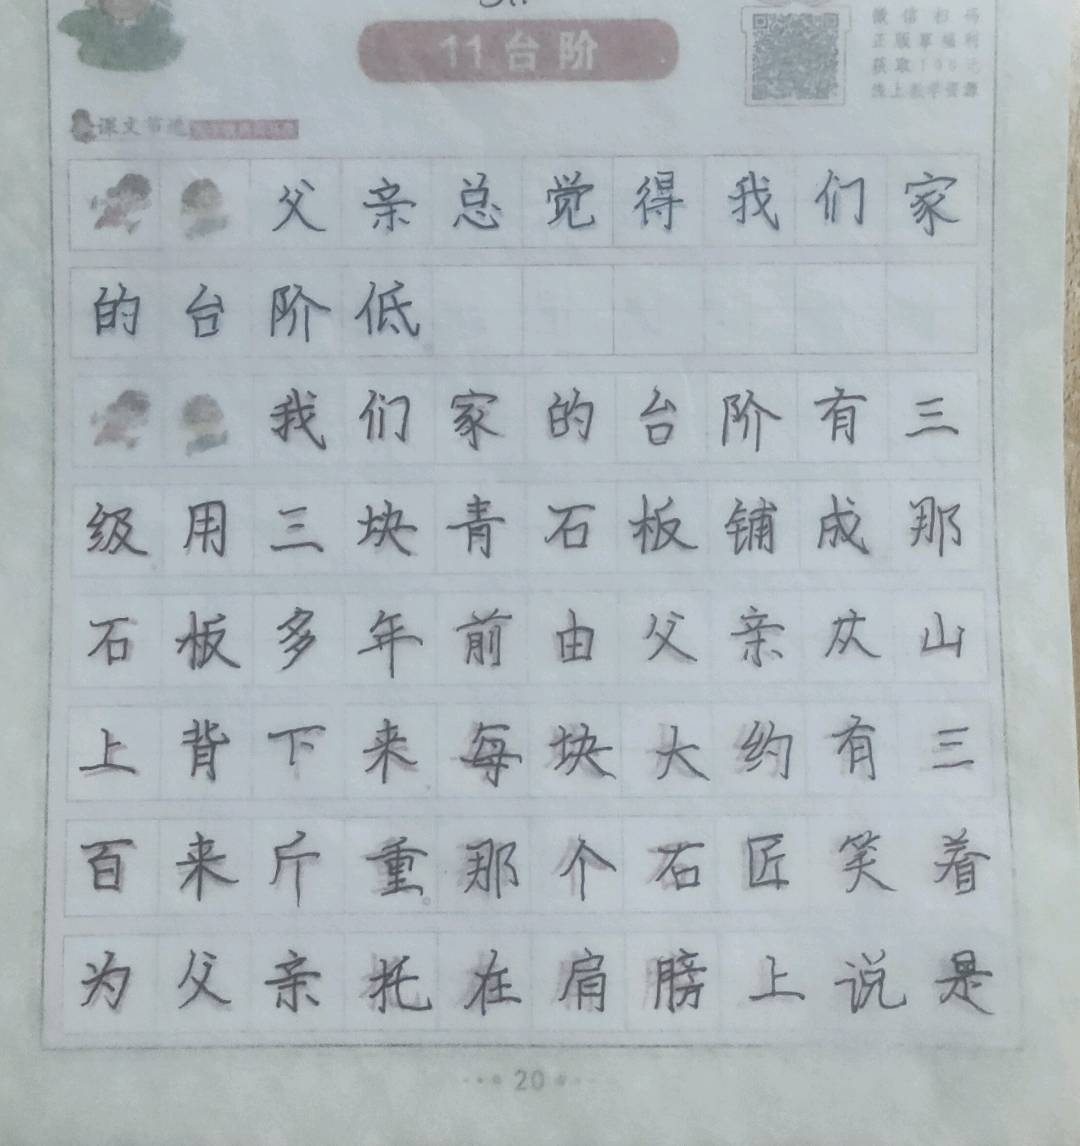 11 台阶
微信扫码
正版享福利
线上教学资源
课文节选
父亲总觉得我们家
的台阶低
我们家的台阶有三
级用三块青石板铺成那
石板多年前由父亲从山
上背下来每块大约有三
百来斤重那个石匠笑着
为父亲托在肩膀上说是
20